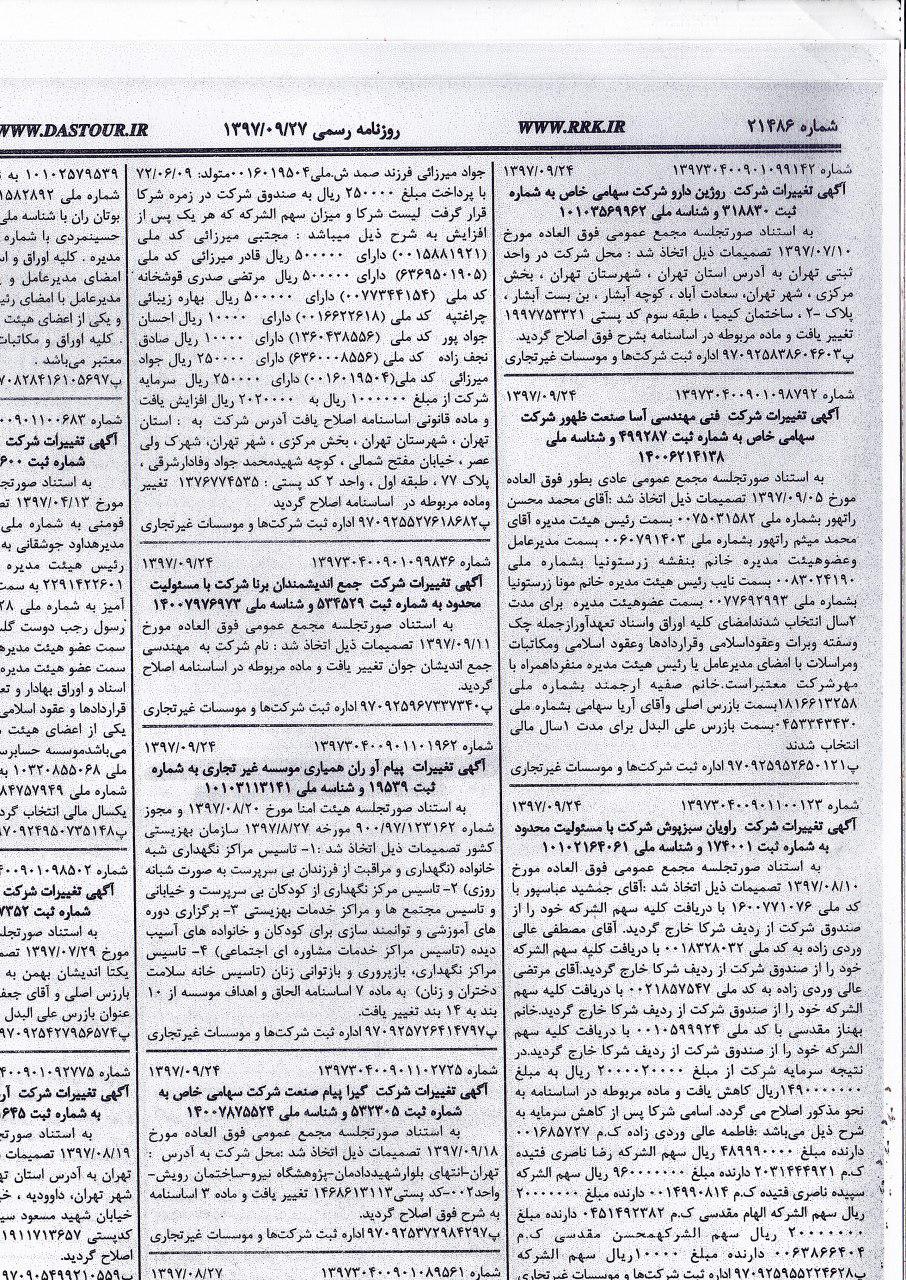 شماره ۲۱۴۸۶
WWW.RRK.IR
روزنامه رسمی ۱۳۹۷/۰۹/۲۷
WWW.DASTOUR.IR
شماره ۱۳۹۷۳۰۴۰۰۹۰۱۰۹۹۱۴۲ ۱۳۹۷/۰۹/۲۴
آگهی تغییرات شرکت روژین دارو شرکت سهامی خاص به شماره
ثبت ۳۱۸۸۳۰ و شناسه ملی ۱۰۱۰۳۵۶۹۹۶۲
به استناد صورتجلسه مجمع عمومی فوق العاده مورخ
۱۳۹۷/۰۷/۱۰ تصمیمات ذیل اتخاذ شد : محل شرکت در واحد
ثبتی تهران به آدرس استان تهران ، شهرستان تهران ، بخش
مرکزی ، شهر تهران، سعادت آباد ، کوچه آبشار ، بن بست آبشار ،
پلاک ۲- ، ساختمان کیمیا ، طبقه سوم کد پستی ۱۹۹۷۷۵۳۳۲۱
تغییر یافت و ماده مربوطه در اساسنامه بشرح فوق اصلاح گردید.
پ۹۷۰۹۲۵۸۳۸۶۰۴۶۰۳ اداره ثبت شرکت‌ها و موسسات غیرتجاری
شماره ۱۳۹۷۳۰۴۰۰۹۰۱۰۹۸۷۹۲ ۱۳۹۷/۰۹/۲۴
آگهی تغییرات شرکت فنی مهندسی آسا صنعت ظهور شرکت
سهامی خاص به شماره ثبت ۴۹۹۲۸۷ و شناسه ملی
۱۴۰۰۶۲۱۴۱۳۸
به استناد صورتجلسه مجمع عمومی عادی بطور فوق العاده
مورخ ۱۳۹۷/۰۹/۰۵ تصمیمات ذیل اتخاذ شد :آقای محمد محسن
راتهور بشماره ملی ۰۰۷۵۰۳۱۵۸۲ بسمت رئیس هیئت مدیره آقای
محمد میثم راتهور بشماره ملی ۰۰۶۰۷۹۱۴۰۳ بسمت مدیرعامل
وعضوهیئت مدیره خانم بنفشه زرستونیا بشماره ملی
۰۰۸۳۰۲۴۱۹۰ بسمت نایب رئیس هیئت مدیره خانم مونا زرستونیا
بشماره ملی ۰۰۷۷۶۹۲۹۹۳ بسمت عضوهیئت مدیره برای مدت
۲سال انتخاب شدندامضای کلیه اوراق واسناد تعهدآورازجمله چک
وسفته وبرات وعقوداسلامی وقراردادها وعقود اسلامی ومکاتبات
ومراسلات با امضای مدیرعامل یا رئیس هیئت مدیره منفرداهمراه با
مهرشرکت معتبراست.خانم صفیه ارجمند بشماره ملی
۱۸۱۶۶۱۳۲۵۸بسمت بازرس اصلی وآقای آریا سهامی بشماره ملی
۰۴۵۳۳۴۳۴۳۰بسمت بازرس علی البدل برای مدت ۱سال مالی
انتخاب شدند
پ۹۷۰۹۲۵۹۵۲۶۵۰۱۲۱ اداره ثبت شرکت‌ها و موسسات غیرتجاری
شماره ۱۳۹۷۳۰۴۰۰۹۰۱۱۰۰۱۲۳ ۱۳۹۷/۰۹/۲۴
آگهی تغییرات شرکت راویان سبزپوش شرکت با مسئولیت محدود
به شماره ثبت ۱۷۴۰۰۱ و شناسه ملی ۱۰۱۰۲۱۶۴۰۶۱
به استناد صورتجلسه مجمع عمومی فوق العاده مورخ
۱۳۹۷/۰۸/۱۰ تصمیمات ذیل اتخاذ شد :آقای جمشید عباسپور با
کد ملی ۱۶۰۰۷۷۱۰۷۶ با دریافت کلیه سهم الشرکه خود را از
صندوق شرکت از ردیف شرکا خارج گردید. آقای مصطفی عالی
وردی زاده به کد ملی ۰۰۱۸۳۲۸۰۳۲ با دریافت کلیه سهم الشرکه
خود را از صندوق شرکت از ردیف شرکا خارج گردید.آقای مرتضی
عالی وردی زاده به کد ملی ۰۰۲۱۸۵۷۵۴۷ با دریافت کلیه سهم
الشرکه خود را از صندوق شرکت از ردیف شرکا خارج گردید.خانم
بهناز مقدسی با کد ملی ۰۰۱۰۵۹۹۹۲۴ با دریافت کلیه سهم
الشرکه خود را از صندوق شرکت از ردیف شرکا خارج گردید.در
نتیجه سرمایه شرکت از مبلغ ۲۰۰۰۰۲۰۰۰۰ ریال به مبلغ
۱۴۹۰۰۰۰۰۰۰ریال کاهش یافت و ماده مربوطه در اساسنامه به
نحو مذکور اصلاح می گردد. اسامی شرکا پس از کاهش سرمایه به
شرح ذیل می‌باشد :فاطمه عالی وردی زاده ک.م ۰۰۱۶۸۵۷۲۷
دارنده مبلغ ۴۸۹۹۹۰۰۰۰ ریال سهم الشرکه رضا ناصری فتیده
ک.م ۲۰۳۱۴۴۴۹۲۱ دارنده مبلغ ۹۶۰۰۰۰۰۰۰ ریال سهم الشرکه
سپیده ناصری فتیده ک.م ۰۰۱۴۹۹۰۸۱۴ دارنده مبلغ ۲۰۰۰۰۰۰۰
ریال سهم الشرکه الهام مقدسی ک.م ۰۴۵۱۴۹۲۳۸۲ دارنده مبلغ
۲۰۰۰۰۰۰۰ ریال سهم الشرکهمحسن مقدسی ک.م
۰۰۶۳۸۶۶۴۰۴ دارنده مبلغ ۱۰۰۰۰ریال سهم الشرکه
پ۹۷۰۹۲۵۹۵۵۲۲۴۶۲۸ اداره ثبت شرکت‌ها و موسسات غیرتجاری
جواد میرزائی فرزند صمد ش.ملی۰۰۱۶۰۱۹۵۰۴متولد: ۷۲/۰۶/۰۹
با پرداخت مبلغ ۲۵۰۰۰۰ ریال به صندوق شرکت در زمره شرکا
قرار گرفت لیست شرکا و میزان سهم الشرکه که هر یک پس از
افزایش به شرح ذیل میباشد : مجتبی میرزائی کد ملی
(۰۰۱۵۸۸۱۹۲۱) دارای ۵۰۰۰۰۰ ریال قادر میرزائی کد ملی
(۶۳۶۹۵۰۱۹۰۵) دارای ۵۰۰۰۰۰ ریال مرتضی صدری قوشخانه
کد ملی (۰۰۷۷۳۴۴۱۵۴) دارای ۵۰۰۰۰۰ ریال بهاره زیبائی
چراغتپه کد ملی (۰۰۱۶۶۲۲۶۱۸) دارای ۱۰۰۰۰ ریال احسان
جواد پور کد ملی (۱۳۶۰۴۳۸۵۵۶) دارای ۱۰۰۰۰ ریال صادق
نجف زاده کد ملی (۶۳۶۰۰۰۸۵۵۶) دارای ۲۵۰۰۰۰ ریال جواد
میرزائی کد ملی(۰۰۱۶۰۱۹۵۰۴) دارای ۲۵۰۰۰۰ ریال سرمایه
شرکت از مبلغ ۱۰۰۰۰۰۰ ریال به ۲۰۲۰۰۰۰ ریال افزایش یافت
و ماده قانونی اساسنامه اصلاح یافت آدرس شرکت به : استان
تهران ، شهرستان تهران ، بخش مرکزی ، شهر تهران، شهرک ولی
عصر ، خیابان مفتح شمالی ، کوچه شهیدمحمد جواد وفادارشرقی ،
پلاک ۷۷ ، طبقه اول ، واحد ۲ کد پستی : ۱۳۷۶۷۷۴۵۳۵ تغییر
وماده مربوطه در اساسنامه اصلاح گردید
پ۹۷۰۹۲۵۵۲۷۶۱۸۶۸۲ اداره ثبت شرکت‌ها و موسسات غیرتجاری
شماره ۱۳۹۷۳۰۴۰۰۹۰۱۰۹۹۸۳۶ ۱۳۹۷/۰۹/۲۴
آگهی تغییرات شرکت جمع اندیشمندان برنا شرکت با مسئولیت
محدود به شماره ثبت ۵۳۴۵۲۹ و شناسه ملی ۱۴۰۰۷۹۷۶۹۷۳
به استناد صورتجلسه مجمع عمومی فوق العاده مورخ
۱۳۹۷/۰۹/۱۱ تصمیمات ذیل اتخاذ شد : نام شرکت به مهندسی
جمع اندیشان جوان تغییر یافت و ماده مربوطه در اساسنامه اصلاح
گردید.
پ۹۷۰۹۲۵۹۶۷۳۳۷۳۴۰ اداره ثبت شرکت‌ها و موسسات غیرتجاری
شماره ۱۳۹۷۳۰۴۰۰۹۰۱۱۰۱۹۶۲ ۱۳۹۷/۰۹/۲۴
آگهی تغییرات پیام آو ران همیاری موسسه غیر تجاری به شماره
ثبت ۱۹۵۳۹ و شناسه ملی ۱۰۱۰۳۱۱۳۱۴۱
به استناد صورتجلسه هیئت امنا مورخ ۱۳۹۷/۰۸/۲۰ و مجوز
شماره ۹۰۰/۹۷/۱۲۳۱۶۲ مورخه ۱۳۹۷/۸/۲۷ سازمان بهزیستی
کشور تصمیمات ذیل اتخاذ شد :۱- تاسیس مراکز نگهداری شبه
خانواده (نگهداری و مراقبت از فرزندان بی سرپرست به صورت شبانه
روزی) ۲- تاسیس مرکز نگهداری از کودکان بی سرپرست و خیابانی
و تاسیس مجتمع ها و مراکز خدمات بهزیستی ۳- برگزاری دوره
های آموزشی و توانمند سازی برای کودکان و خانواده های آسیب
دیده (تاسیس مراکز خدمات مشاوره ای اجتماعی) ۴- تاسیس
مراکز نگهداری، بازپروری و بازتوانی زنان (تاسیس خانه سلامت
دختران و زنان) به ماده ۷ اساسنامه الحاق و اهداف موسسه از ۱۰
بند به ۱۴ بند تغییر یافت.
پ۹۷۰۹۲۵۷۲۶۴۱۴۷۹۷ اداره ثبت شرکت‌ها و موسسات غیرتجاری
شماره ۱۳۹۷۳۰۴۰۰۹۰۱۱۰۲۷۲۵ ۱۳۹۷/۰۹/۲۴
آگهی تغییرات شرکت گیرا پیام صنعت شرکت سهامی خاص به
شماره ثبت ۵۳۲۳۰۵ و شناسه ملی ۱۴۰۰۷۸۷۵۵۲۴
به استناد صورتجلسه مجمع عمومی فوق العاده مورخ
۱۳۹۷/۰۹/۱۸ تصمیمات ذیل اتخاذ شد :محل شرکت به آدرس :
تهران-انتهای بلوارشهیددادمان-پژوهشگاه نیرو-ساختمان رویش-
واحد۰۰۲-کد پستی۱۴۶۸۶۱۳۱۱۳ تغییر یافت و ماده ۳ اساسنامه
به شرح فوق اصلاح گردید.
پ۹۷۰۹۲۵۳۷۲۹۸۴۲۹۷ اداره ثبت شرکت‌ها و موسسات غیرتجاری
شماره ۱۳۹۷۳۰۴۰۰۹۰۱۰۸۹۵۶۱ ۱۳۹۷/۰۸/۲۷
۱۰۱۰۲۵۷۹۵۳۹ به
شماره ملی ۱۵۸۲۸۹۲
بوتان ران با شناسه ملی
حسینمردی با شماره
مدیره . کلیه اوراق و
امضای مدیرعامل و
مدیرعامل با امضای
و یکی از اعضای هیئت
. کلیه اوراق و مکاتبات
معتبر می‌باشد .
۷۰۸۲۸۴۱۶۱۰۵۶۹۷پ
شماره ۰۰۹۰۱۱۰۰۶۸۳
آگهی تغییرات شرکت
شماره ثبت ۶۰۰
به استناد
مورخ ۱۳۹۷/۰۴/۱۳
فومنی به شماره ملی
مدیرهداود جوشقانی به
رئیس هیئت مدیره
۲۲۹۱۴۲۲۶۰۱ به سمت
آمیز به شماره ملی ۲۸
رسول رجب دوست
سمت عضو هیئت
سمت عضو هیئت مدیره
اسناد و اوراق بهادار و
قراردادها و عقود اسلامی
یکی از اعضای هیئت
می‌باشدموسسه
ملی ۱۰۳۲۰۸۵۵۰۶۸
شماره ملی ۸۴۷۵۷۹۴۹
یکسال مالی انتخاب
۹۷۰۹۲۴۹۵۰۷۳۵۱۴۸پ
شماره ۰۰۹۰۱۰۹۸۵۰۲
آگهی تغییرات شرکت
شماره ثبت ۷۳۵۲
به استناد
مورخ ۱۳۹۷/۰۷/۲۹
یکتا اندیشان بهمن به
بازرس اصلی و آقای
عنوان بازرس علی البدل
۹۷۰۹۲۵۴۲۷۹۵۶۵۷۴پ
شماره ۰۰۹۰۱۰۹۲۷۷۵
آگهی تغییرات شرکت
به شماره ثبت ۶۴۵
به استناد
۱۳۹۷/۰۸/۱۹ تصمیمات
تهران به آدرس استان
شهر تهران، داوودیه ،
خیابان شهید مسعود
کدپستی ۱۹۱۱۷۱۳۶۵۷
اصلاح گردید.
۹۷۰۹۰۵۴۹۹۲۱۰۵۵۹پ